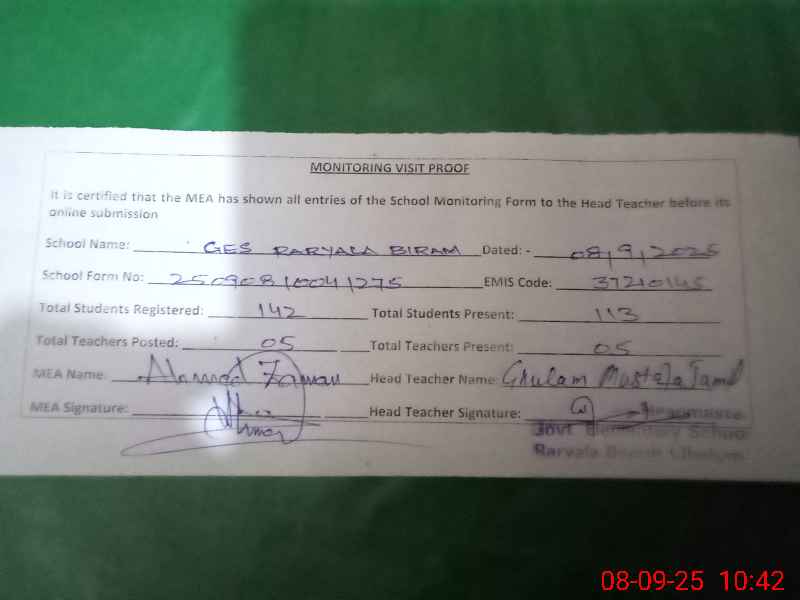 MONITORING VISIT PROOF
It is certified that the MEA has shown all entries of the School Monitoring Form to the Head Teacher before its
online submission
School Name: GES RARYALA BIRAM Dated: - 08,9,2025
School Form No: 25090810041275 EMIS Code: 37210145
Total Students Registered: 142 Total Students Present: 113
Total Teachers Posted: 05 Total Teachers Present: 05
MEA Name: Ahmed Zaman Head Teacher Name: Ghulam Mustafa Jamil
MEA Signature: Head Teacher Signature:
Headmaster
Govt Elementary School
Raryala
08-09-25 10:42